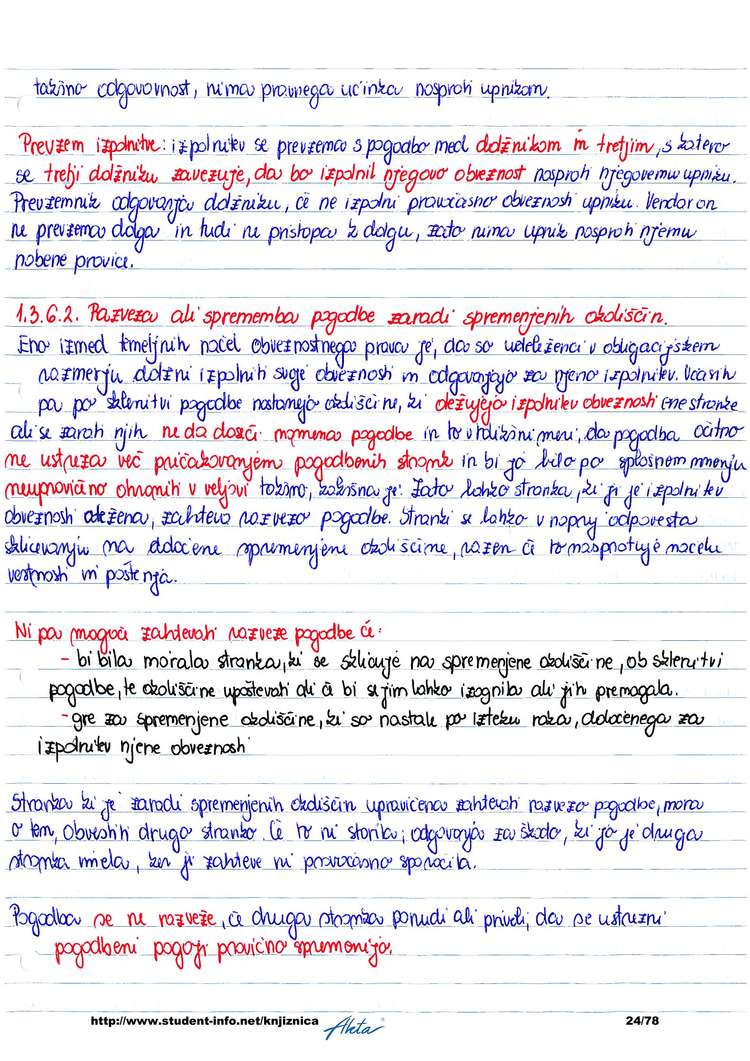 takšno odgovornost, nima pravnega učinka nasproti upnikom.
Prevzem izpolnitve: izpolnitev se prevzema s pogodbo med dolžnikom in tretjim, s katero
se tretji dolžniku zavezuje, da bo izpolnil njegovo obveznost nasproti njegovemu upniku.
Prevzemnik odgovarja dolžniku, če ne izpolni pravočasno obveznosti upniku. Vendar on
ne prevzema dolga in tudi ne pristopa k dolgu, zato nima upnik nasproti njemu
nobene pravice.
1.3.6.2. Razveza ali sprememba pogodbe zaradi spremenjenih okoliščin.
Eno izmed temeljnih načel obveznostnega prava je, da so udeleženci v obligacijskem
razmerju dolžni izpolniti svoje obveznosti in odgovarjajo za njeno izpolnitev. Včasih
pa po sklenitvi pogodbe nastanejo okoliščine, ki otežujejo izpolnitev obveznosti ene stranke
ali se zaradi njih ne da doseči namena pogodbe in to v tolikšni meri, da pogodba očitno
ne ustreza več pričakovanjem pogodbenih strank in bi jo bilo po splošnem mnenju
neupravičeno ohraniti v veljavi takšno, kakršna je. Zato lahko stranka, ki ji je izpolnitev
obveznosti otežena, zahteva razvezo pogodbe. Stranki se lahko v naprej odpovesta
sklicevanju na določene spremenjene okoliščine, razen če to nasprotuje načelu
vestnosti in poštenja.
Ni pa mogoče zahtevati razveze pogodbe če:
- bi bila morala stranka, ki se sklicuje na spremenjene okoliščine, ob sklenitvi
pogodbe, te okoliščine upoštevati ali če bi se jim lahko izognila ali jih premagala.
- gre za spremenjene okoliščine, ki so nastale po izteku roka, določenega za
izpolnitev njene obveznosti
Stranka ki je zaradi spremenjenih okoliščin upravičena zahtevati razvezo pogodbe, mora
o tem, obvestiti drugo stranko. Če to ni storila, odgovarja za škodo, ki jo je druga
stranka imela, ker ji zahteve ni pravočasno sporočila.
Pogodba se ne razveže, če druga stranka ponudi ali privoli, da se ustrezni
pogodbeni pogoji pravično spremenijo.
http://www.student-info.net/knjiznica Akta 24/78